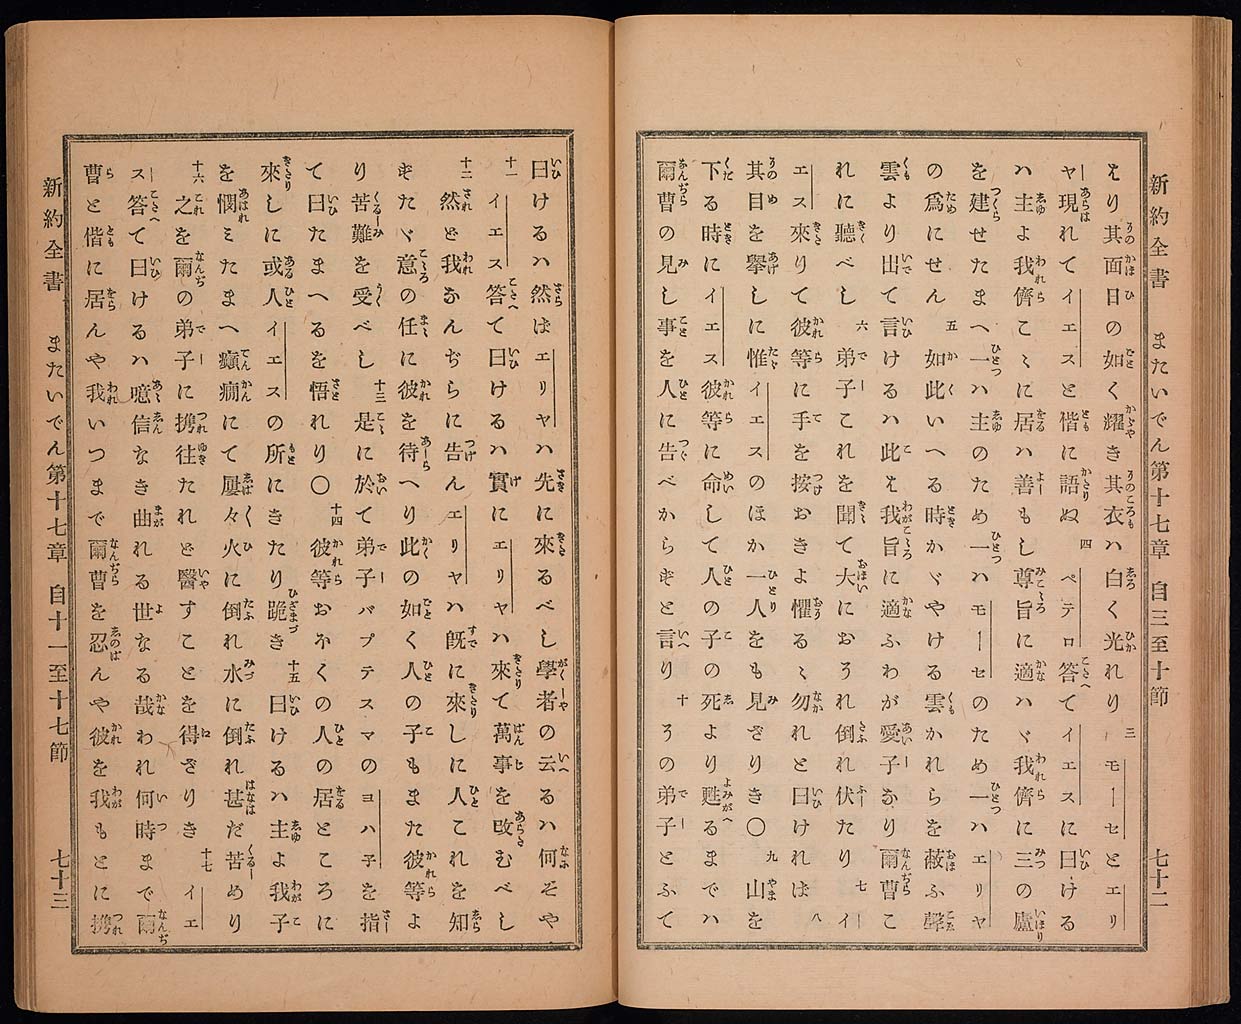 新約全書　またいでん第十七章　自三至十節　七十二
え り其面日の如く耀き其衣ハ白く光れり 三 モーセとエリ
ヤ現れてイエスと偕に語ぬ 四 ペテロ答てイエスに曰ける
ハ主よ我儕こゝに居ハ善もし尊旨に適ハヾ我儕に三の廬
を建せたまへ一ハ主のため一ハモーセのため一ハエリヤ
の爲にせん 五 如此いへる時かゞやける雲かれらを蔽ふ聲
雲より出て言けるハ此ハ我旨に適ふわが愛子なり爾曹こ
れに聽べし 六 弟子これを聞て大におそれ倒れ伏たり 七 イ
エス來りて彼等に手を按おきよ懼るゝ勿れと曰ければ 八
其目を擧しに惟イエスのほか一人をも見ざりき〇 九 山を
下る時にイエス彼等に命して人の子の死より甦るまでハ
爾曹の見し事を人に告べからずと言り 十 その弟子とふて
曰けるハ然ばエリヤハ先に來るべし學者の云るハ何ぞや
十一 イエス答て曰けるハ實にエリヤハ來て萬事を改むべし
十二 然ど我なんぢらに告んエリヤハ既に來しに人これを知
ずたゞ意の任に彼を待へり此の如く人の子もまた彼等よ
り苦難を受べし 十三 是に於て弟子バプテスマのヨハ子を指
て曰たまへるを悟れり〇 十四 彼等おほくの人の居ところに
來しに或人イエスの所にきたり跪き 十五 曰けるハ主よ我子
を憫ミたまへ癲癇にて屢々火に倒れ水に倒れ甚だ苦めり
十六 之を爾の弟子に携往たれど醫すことを得ざりき 十七 イエ
ス答て曰けるハ噫信なき曲れる世なる哉われ何時まで爾
曹と偕に居んや我いつまで爾曹を忍んや彼を我もとに携
新約全書　またいでん第十七章　自十一至十七節　七十三